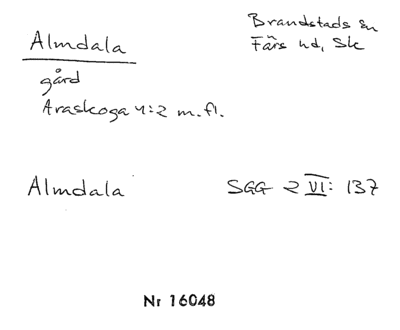 Almdala
Brandstads sn
Färs hd, Sk
gård
Araskoga 4:2 m.fl.
Almdala
SGG 2 VI: 137
Nr 16048